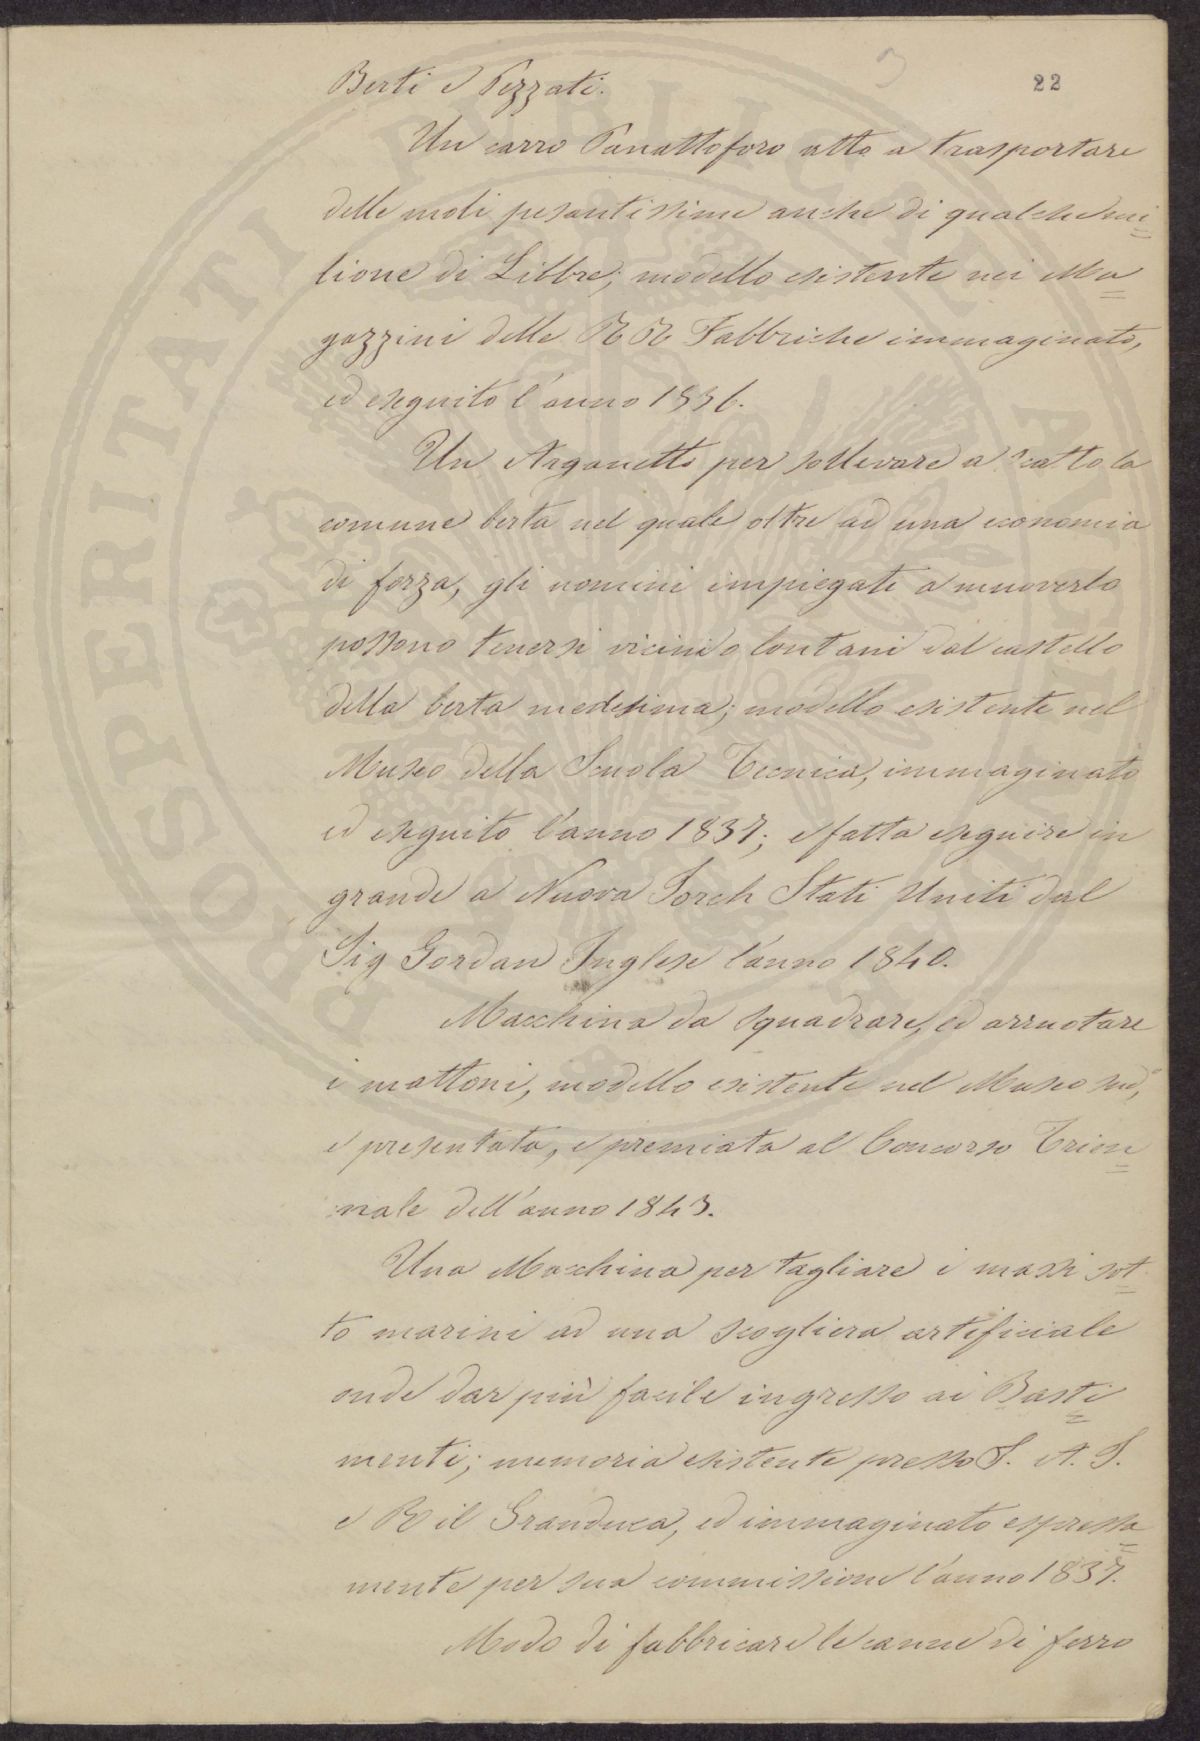 22
Berti e Pezzati.
Un carro Panattoforo atto a trasportare
delle moli pesantissime anche di qualche mi=
lione di Libbre; modello esistente nei Ma=
gazzini delle RR Fabbriche immaginato,
ed eseguito l'anno 1836.
Un Arganetto per sollevare a scatto la
comune berta nel quale oltre ad una economia
di forza, gli uomini impiegati a muoverlo
possono tenersi vicini o lontani dal castello
della berta medesima; modello esistente nel
Museo della Scuola Tecnica, immaginato
ed eseguito l'anno 1837; e fatta eseguire in
grande a Nuova Jorch Stati Uniti dal
Sig Gordan Inglese l'anno 1840.
Macchina da squadrare, ed arruotare
i mattoni, modello esistente nel Museo sud,°
e presentata, e premiata al Concorso Trien=
nale dell'anno 1843.
Una Macchina per tagliare i massi sot=
to marini ad una scogliera artificiale
onde dar più facile ingresso ai Basti=
menti; memoria esistente presso S. A. I.
e R il Granduca, ed immaginato espressa=
mente per sua commissione l'anno 1837.
Modo di fabbricare le canne di ferro
PROSPERITATI PVBLICAE AVGENDAE